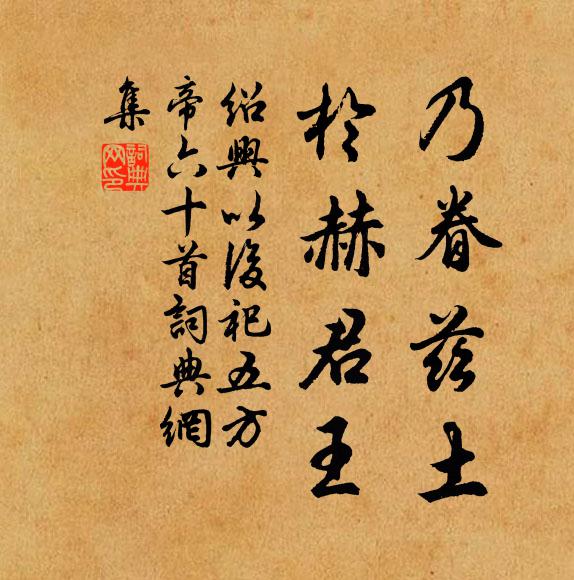 乃眷茲土
於赫君王
紹興以後祀五方
帝六十首詞典網
集
詞典網印